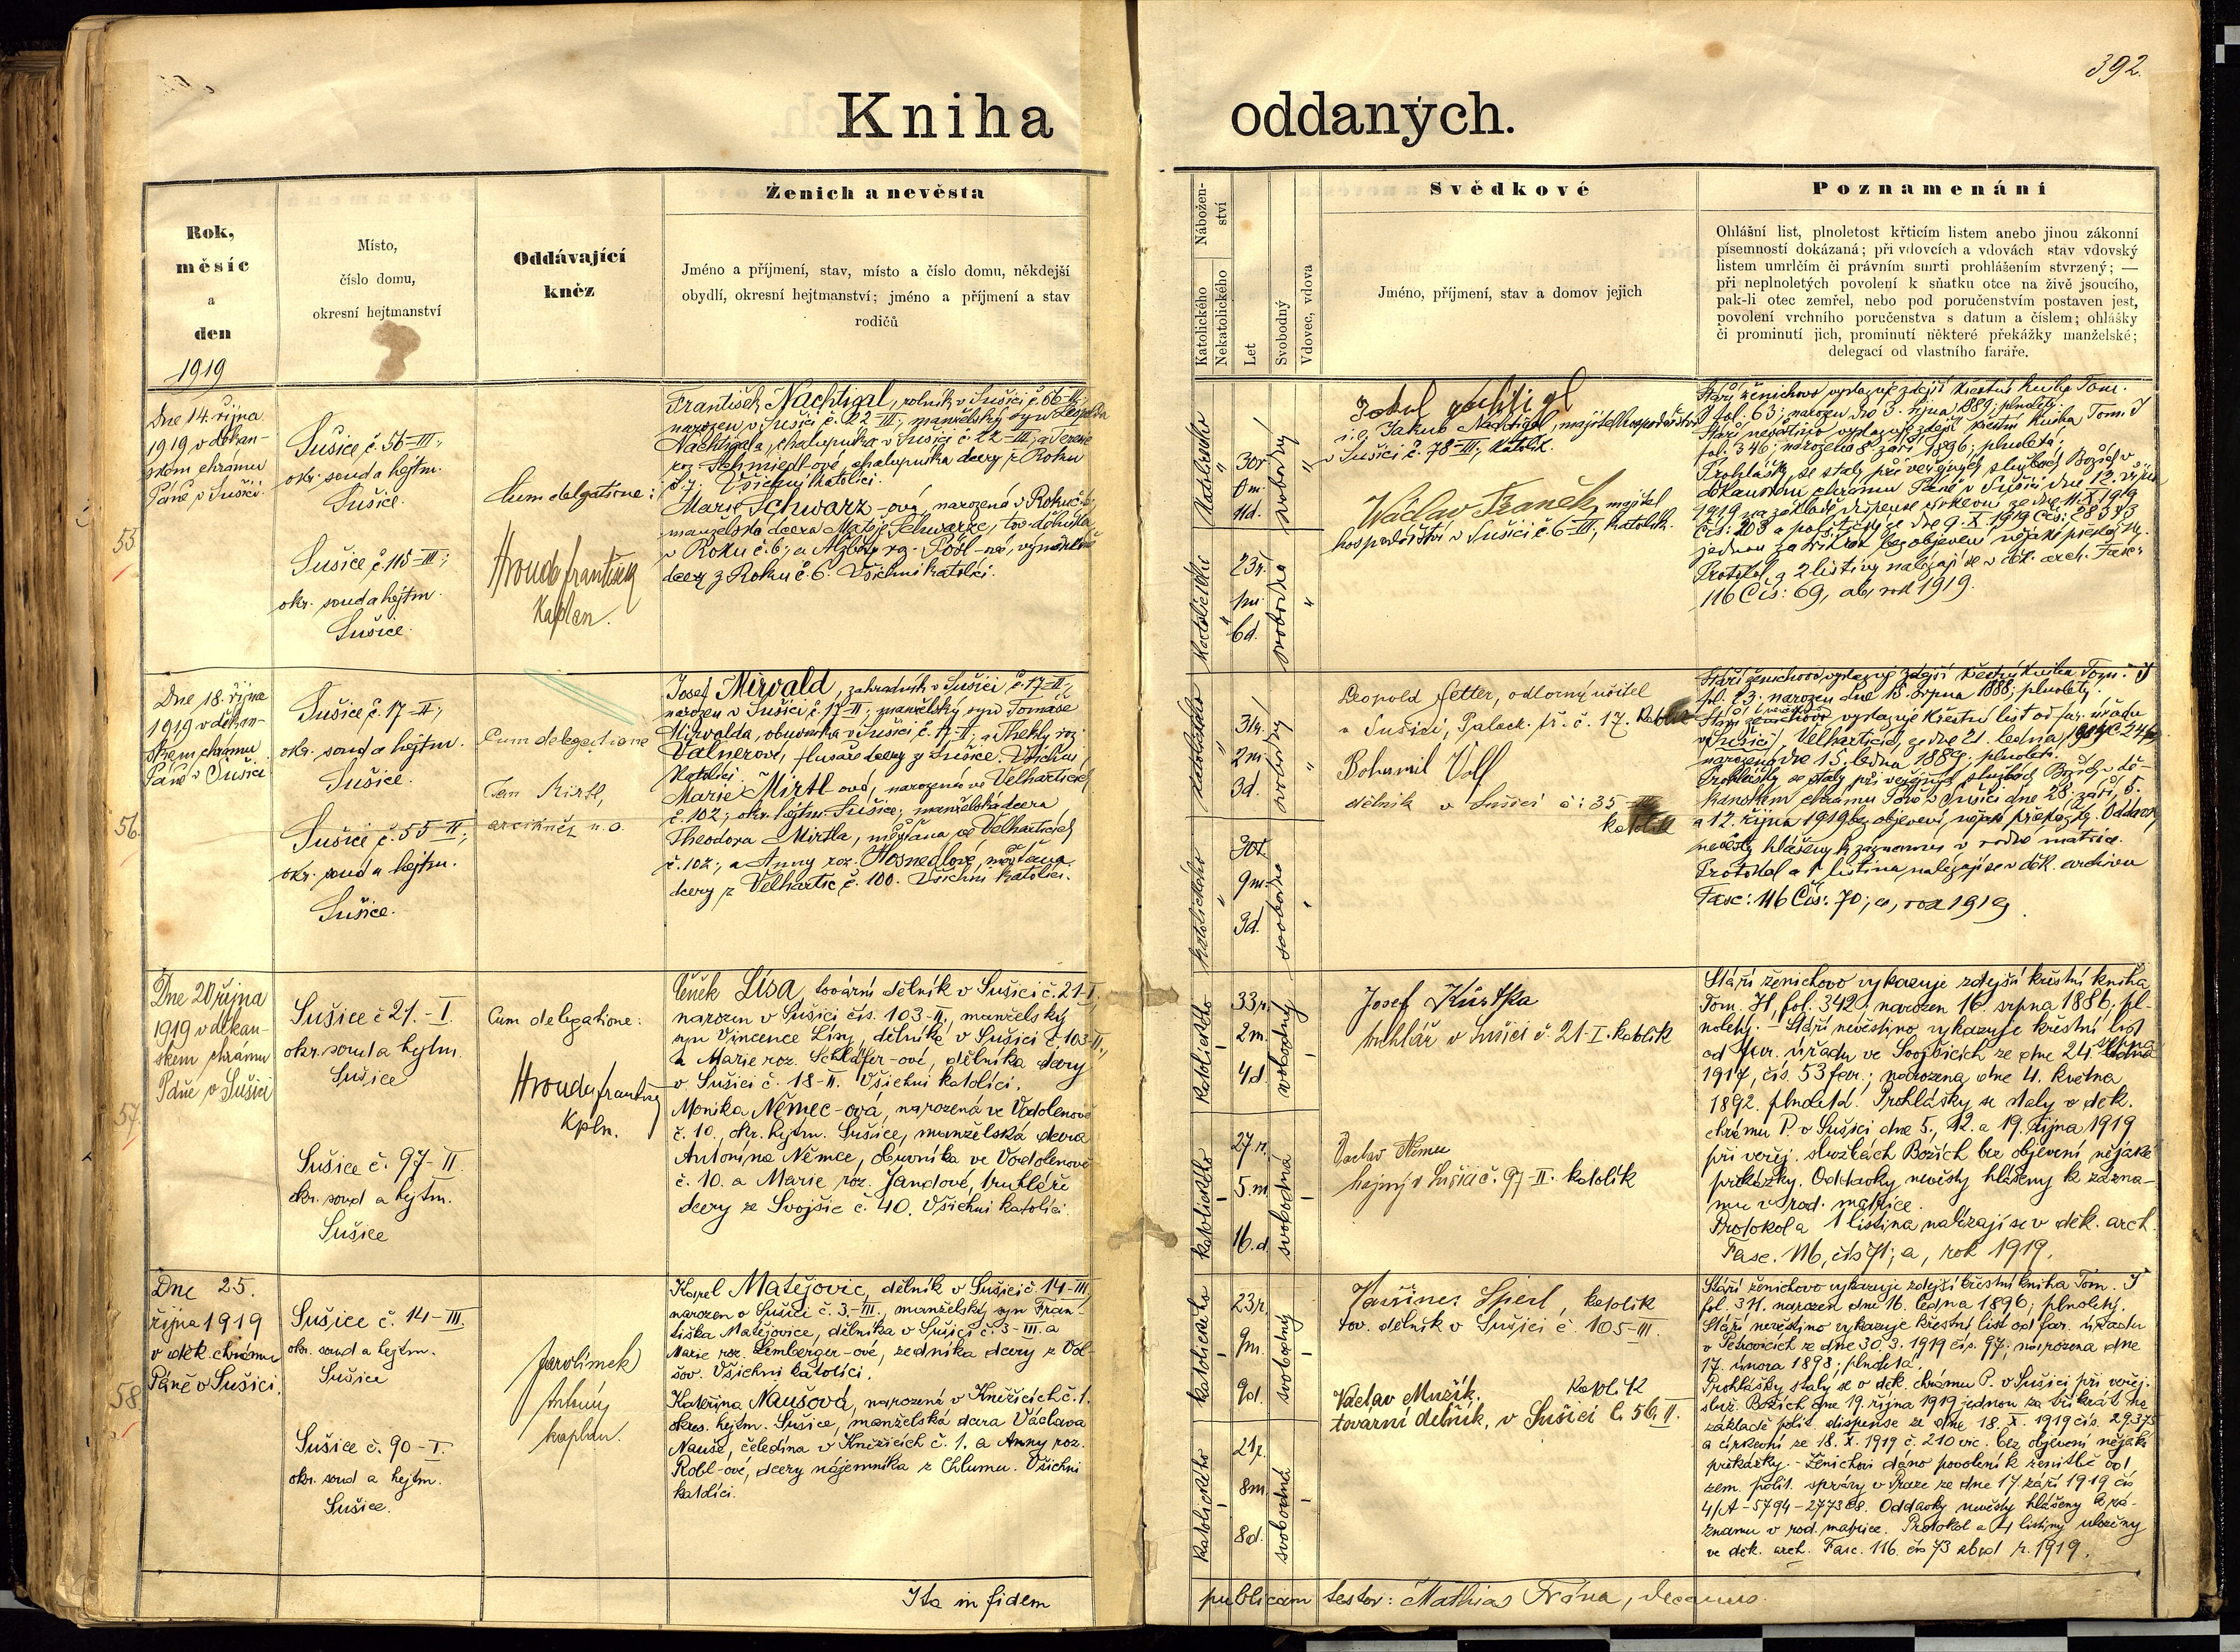 392.
Kniha oddaných.
Rok,
měsíc
a
den
1919
Místo,
číslo domu,
okresní hejtmanství
Oddávající
kněz
Ženich a nevěsta
Jméno a příjmení, stav, místo a číslo domu, někdejší
obydlí, okresní hejtmanství; jméno a příjmení a stav
rodičů
Nábožen-
ství
Katolického
Nekatolického
Let
Svobodný
Vdovec, vdova
Svědkové
Jméno, příjmení, stav a domov jejich
Poznamenání
Ohlášní list, plnoletost křticím listem anebo jinou zákonní
písemností dokázaná; při vdovcích a vdovách stav vdovský
listem umrlčím či právním smrti prohlášením stvrzený; —
při neplnoletých povolení k sňatku otce na živě jsoucího,
pak-li otec zemřel, nebo pod poručenstvím postaven jest,
povolení vrchního poručenstva s datum a číslem; ohlášky
či prominutí jich, prominutí některé překážky manželské;
delegací od vlastního faráře.
55
Dne 14. října
1919 v děkan-
ském chrámu
Páně v Sušici.
Sušice č. 56-III;
okr. soud a hejtm.
Sušice.
Sušice č. 115-III;
okr. soud a hejtm.
Sušice.
Cum delegatione:
Hrouda František
Kaplan.
František Nachtigal, rolník v Sušici č. 56-III,
narozen v Sušici č. 22-III; manželský syn Leopolda
Nachtigala, chalupníka v Sušici č. 22-III, a Terezie
roz. Schmiedl-ové, chalupníka dcery z Roku
č. 7. Všichni katolíci.
Marie Schwarz-ová, narozená v Roku č. 6,
manželská dcera Matěje Schwarze, tov. dělníka
v Roku č. 6, a Alžběty roz. Pösl-ové,
dcery z Roku č. 6. Všichni katolíci.
Katolického
"
30r.
0m.
11d.
svobodný
"
Katolického
"
23r.
1m.
6d.
svobodná
"
i.e. Jakub Nachtigal, majitel hospodářství
v Sušici č. 78-III, katolík.
Václav Franěk, majitel
hospodářství v Sušici č. 6-III, katolík.
Stáří ženichovo vykazuje zdejší křestní kniha Tom.
I fol. 63; narozen dne 3. října 1889; plnoletý.
Stáří nevěstino vykazuje zdejší křestní kniha Tom. I
fol. 346; narozena 8. září 1896; plnoletá.
Prohlášky se staly při veřejných službách Božích v
děkanském chrámu Páně v Sušici dne 12. října
1919 na základě dispense církevní ze dne 11.X.1919
čís: 203 a politický ze dne 9.X.1919 čís: 28373
jednou za třikrát bez objevení nějaké překážky.
Protokol a 2 listiny nalézají se v děk. arch. Fasc:
116 Čís: 69, ab, rok 1919.
56
Dne 18. října
1919 v děkan-
ském chrámu
Páně v Sušici
Sušice č. 17-II;
okr. soud a hejtm.
Sušice.
Sušice č. 55-II;
okr. soud a hejtm.
Sušice.
Cum delegatione
Jan Mirtl,
arcikněz n.o.
Josef Mirvald, zahradník v Sušici, č. 17-II;
narozen v Sušici č. 17-II; manželský syn Tomáše
Mirvalda, obuvníka v Sušici č. 17-II; a Thekly roz.
Valnerové, flusaře dcery z Sušice. Všichni
katolíci.
Marie Mirtl-ová, narozená ve Velharticích
č. 102; okr. hejtm. Sušice; manželská dcera
Theodora Mirtla, měšťana ve Velharticích
č. 102; a Anny roz. Hosnedlové, měšťana
dcery z Velhartic č. 100. Všichni katolíci.
Katolického
"
31r.
2m
3d.
svobodný
"
Katolického
"
30r.
9m.
3d.
svobodná
"
Leopold Fetter, odborný učitel
v Sušici, Palack. tř. č. 17. katolík
Bohumil Voll
dělník v Sušici č: 35-III
katolík
Stáří ženichovo vykazuje zdejší křestní kniha Tom. I
fol. 23; narozen dne 15. srpna 1888; plnoletý.
Stáří nevěstino vykazuje křestní list od far. úřadu
Velharticích, ze dne 21. ledna
narozena dne 15. ledna 1889; plnoletá.
Prohlášky se staly při veřejných službách Božích v dě-
kanském chrámu Páně v Sušici dne 28. září, 5.
a 12. října 1919 bez objevení nějaké překážky. Oddavky
nevěsty hlášeny k záznamu v rodné matrice.
Protokol a 1 listina nalézají se v děk. archivu
Fasc: 116 Čís: 70; a, rok 1919.
57
Dne 20. října
1919 v děkan-
ském chrámu
Páně v Sušici
Sušice č. 21.-I.
okr. soud a hejtm.
Sušice
Sušice č. 97-II.
okr. soud a hejtm.
Sušice
Cum delegatione:
Hrouda František
Kpln.
Čeněk Lísa, tovární dělník v Sušici č. 21-I,
narozen v Sušici čís. 103-II, manželský
syn Vincence Lísy, dělníka v Sušici č. 103-II.,
a Marie roz. Schläfer-ové, dělníka dcery
v Sušici č. 18-II. Všichni katolíci.
Monika Němec-ová, narozená ve Vodolenově
č. 10., okr. hejtm. Sušice, manželská dcera
Antonína Němce, obuvníka ve Vodolenově
č. 10. a Marie roz. Jandové, truhláře
dcery ze Svojšic č. 40. Všichni katolíci.
katolického
33r.
2m.
4d.
svobodný
katolického
27r.
5.m
16.d
svobodná
Josef Kůrstka
truhlář v Sušici č. 21-I. katolík
Václav Němec
hajný v Sušici č. 97-II. katolík
Stáří ženichovo vykazuje zdejší křestní kniha
Tom. H, fol. 342, narozen 16. srpna 1886, pl-
noletý. - Stáří nevěstino vykazuje křestní list
od far. úřadu ve Svojšicích ze dne 24.
1917, čís. 53 far.; narozena dne 4. května
1892. plnoletá. Prohlášky se staly v děk.
chrámu P. v Sušici dne 5., 12. a 19. října 1919
při veřej. službách Božích bez objevení nějaké
překážky. Oddavky nevěsty hlášeny k zázna-
mu v rod. matrice.
Protokol a 1 listina nalézají se v děk. arch.
Fasc. 116, čís 71; a, rok 1919.
58
Dne 25.
října 1919
v děk. chrámu
Páně v Sušici.
Sušice č. 14-III.
okr. soud a hejtm.
Sušice
Sušice č. 90-I.
okr. soud a hejtm.
Sušice.
Jarolímek
Antonín
kaplan.
Karel Matějovic, dělník v Sušici č. 14-III,
narozen v Sušici č. 3.-III., manželský syn Fran-
tiška Matějovice, dělníka v Sušici č. 3-III. a
Marie roz. Lemberger-ové, zedníka dcery z Vol-
šov. Všichni katolíci.
Kateřina Naušová, narozená v Kněžicích č. 1.
okres. hejtm. Sušice, manželská dcera Václava
Nauše, čeledína v Kněžicích č. 1. a Anny roz.
Robl-ové, dcery nájemníka z Chlumu. Všichni
katolíci.
katolického
23r.
9m.
9d.
svobodný
katolického
21r.
8m
8d.
svobodná
Spierl, katolík
tov. dělník v Sušici č. 105-III.
Václav Mužík, katolík
tovarní dělník, v Sušici č. 56, II.
Stáří ženichovo vykazuje zdejší křestní kniha Tom. I
fol. 311. narozen dne 16. ledna 1896; plnoletý.
Stáří nevěstino vykazuje křestní list od far. úřadu
v Petrovicích ze dne 30.3.1919 čís. 97; narozena dne
17. února 1898; plnoletá.
Prohlášky staly se v děk. chrámu P. v Sušici při veřej.
služ. Božích dne 19. října 1919 jednou za třikrát na
základě polit. dispense ze dne 18.X.1919 čís. 29375
a církevní ze 18.X.1919 č. 210 vic. bez objevení nějaké
překážky. - Ženichovi dáno povolení k ženitbě od
zem. polit. správy v Praze ze dne 17. září 1919 čís
4/A-5794-277368. Oddavky nevěsty hlášeny k zá-
znamu v rod. matrice. Protokol a 4 listiny uloženy
ve děk. arch. Fasc. 116. čís 73 abcd r. 1919.
Ita in fidem publicam testor: Mathias Frána, decanus.